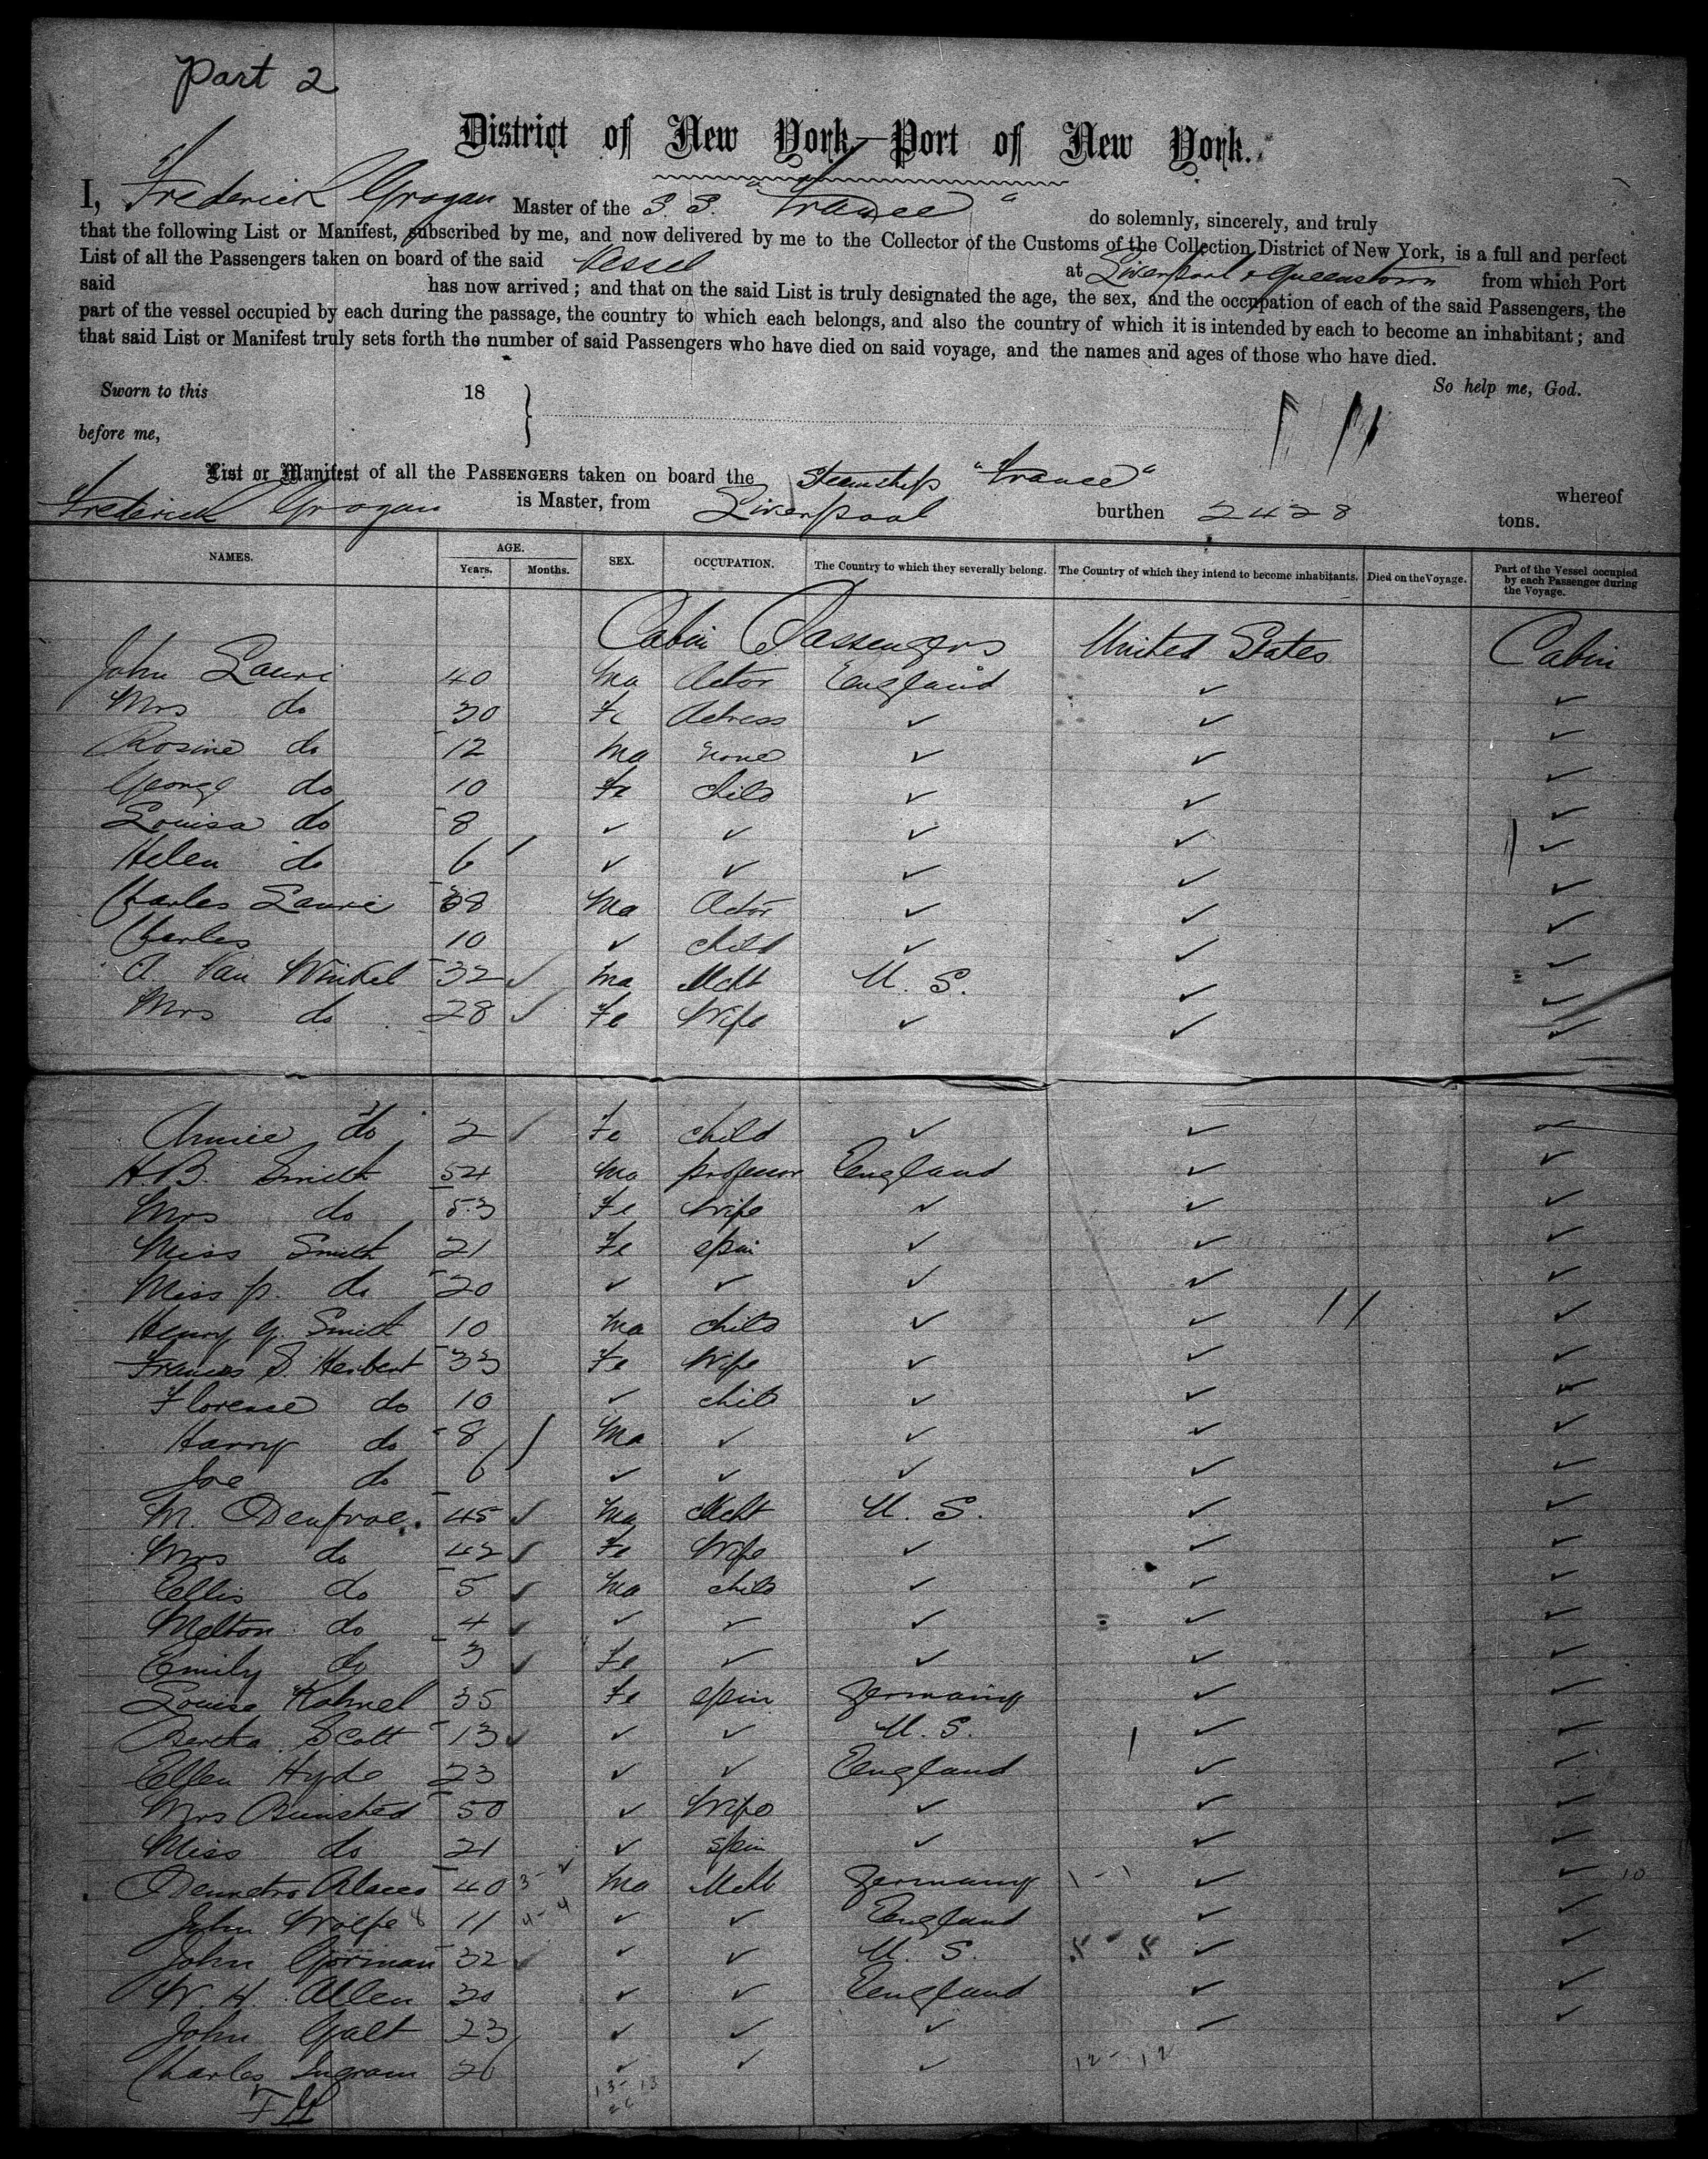 Part 2
District of New York—Port of New York.
I, Frederick Grogan Master of the S. S. "France" do solemnly, sincerely, and truly
that the following List or Manifest, subscribed by me, and now delivered by me to the Collector of the Customs of the Collection District of New York, is a full and perfect
List of all the Passengers taken on board of the said Vessel at Liverpool & Queenstown from which Port
said has now arrived; and that on the said List is truly designated the age, the sex, and the occupation of each of the said Passengers, the
part of the vessel occupied by each during the passage, the country to which each belongs, and also the country of which it is intended by each to become an inhabitant; and
that said List or Manifest truly sets forth the number of said Passengers who have died on said voyage, and the names and ages of those who have died.
So help me, God.
Sworn to this 18
before me,
List or Manifest of all the PASSENGERS taken on board the Steamship "France" whereof
Frederick Grogan is Master, from Liverpool burthen 2428 tons.
NAMES. AGE. Years. Months. SEX. OCCUPATION. The Country to which they severally belong. The Country of which they intend to become inhabitants. Died on the Voyage. Part of the Vessel occupied by each Passenger during the Voyage.
Cabin Passengers United States Cabin
John Lauri 40 Ma Actor England ✓ ✓
Mrs do 30 Fe Actress ✓ ✓ ✓
Rosine do 12 Ma None ✓ ✓ ✓
George do 10 Fe child ✓ ✓ ✓
Louisa do 8 ✓ ✓ ✓ ✓ ✓
Helen do 6 ✓ ✓ ✓ ✓ ✓
Charles Laurie 38 Ma Actor ✓ ✓ ✓
Charles 10 ✓ child ✓ ✓ ✓
A Van Winkel 32 ✓ Ma Mcht U. S. ✓ ✓
Mrs do 28 ✓ Fe Wife ✓ ✓ ✓
Annie do 2 ✓ Fe child ✓ ✓ ✓
H. B. Smith 54 Ma professor England ✓ ✓
Mrs do 53 Fe Wife ✓ ✓ ✓
Miss Smith 21 Fe spin ✓ ✓ ✓
Miss p. do 20 ✓ ✓ ✓ ✓ ✓
Henry G. Smith 10 Ma child ✓ ✓ ✓
Frances S. Herbert 33 Fe Wife ✓ ✓ ✓
Florence do 10 ✓ child ✓ ✓ ✓
Harry do 8 Ma ✓ ✓ ✓ ✓
Joe do 6 ✓ ✓ ✓ ✓ ✓
M. 45 ✓ Ma Mcht U. S. ✓ ✓
Mrs do 42 ✓ Fe Wife ✓ ✓ ✓
Ellis do 5 ✓ Ma child ✓ ✓ ✓
Melton do 4 ✓ ✓ ✓ ✓ ✓ ✓
Emily do 3 ✓ Fe ✓ ✓ ✓ ✓
Louise 35 Fe spin Germany ✓ ✓
Bertha Scott 13 ✓ ✓ ✓ U. S. ✓ ✓
Ellen Hyde 23 ✓ ✓ England ✓ ✓
Mrs 50 ✓ Wife ✓ ✓ ✓
Miss do 21 ✓ spin ✓ ✓ ✓
40 Ma Mcht Germany ✓ ✓ 10
John Wolfe 11 ✓ ✓ England ✓ ✓
John Gorman 32 ✓ ✓ ✓ U. S. ✓ ✓
W. H. Allen 30 ✓ ✓ England ✓ ✓
John Galt 23 ✓ ✓ ✓ ✓ ✓
Charles Ingram 26 ✓ ✓ ✓ 12-12
13-13